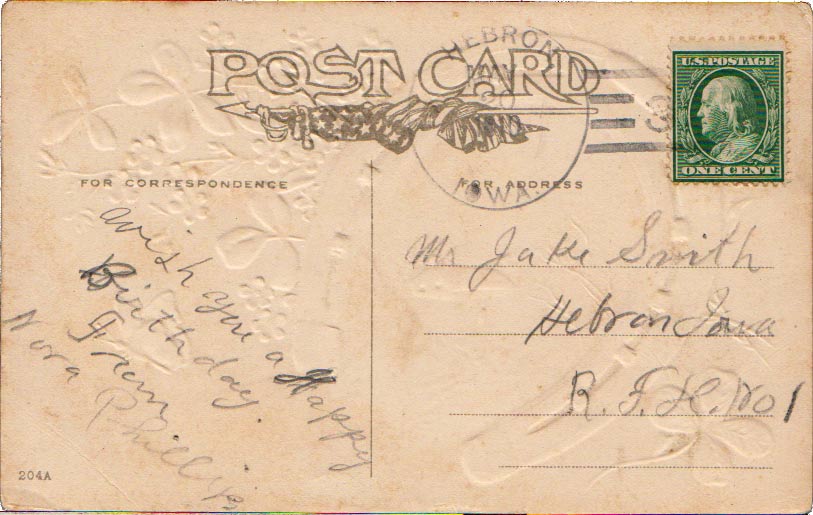 POST CARD
HEBRON
MAY
20
IOWA
U.S. POSTAGE
ONE CENT
FOR CORRESPONDENCE
FOR ADDRESS
wish you a Happy
Birthday.
From
Nora Phillips
Mr Jake Smith
Hebron Iowa
R. F. H. No 1
204A